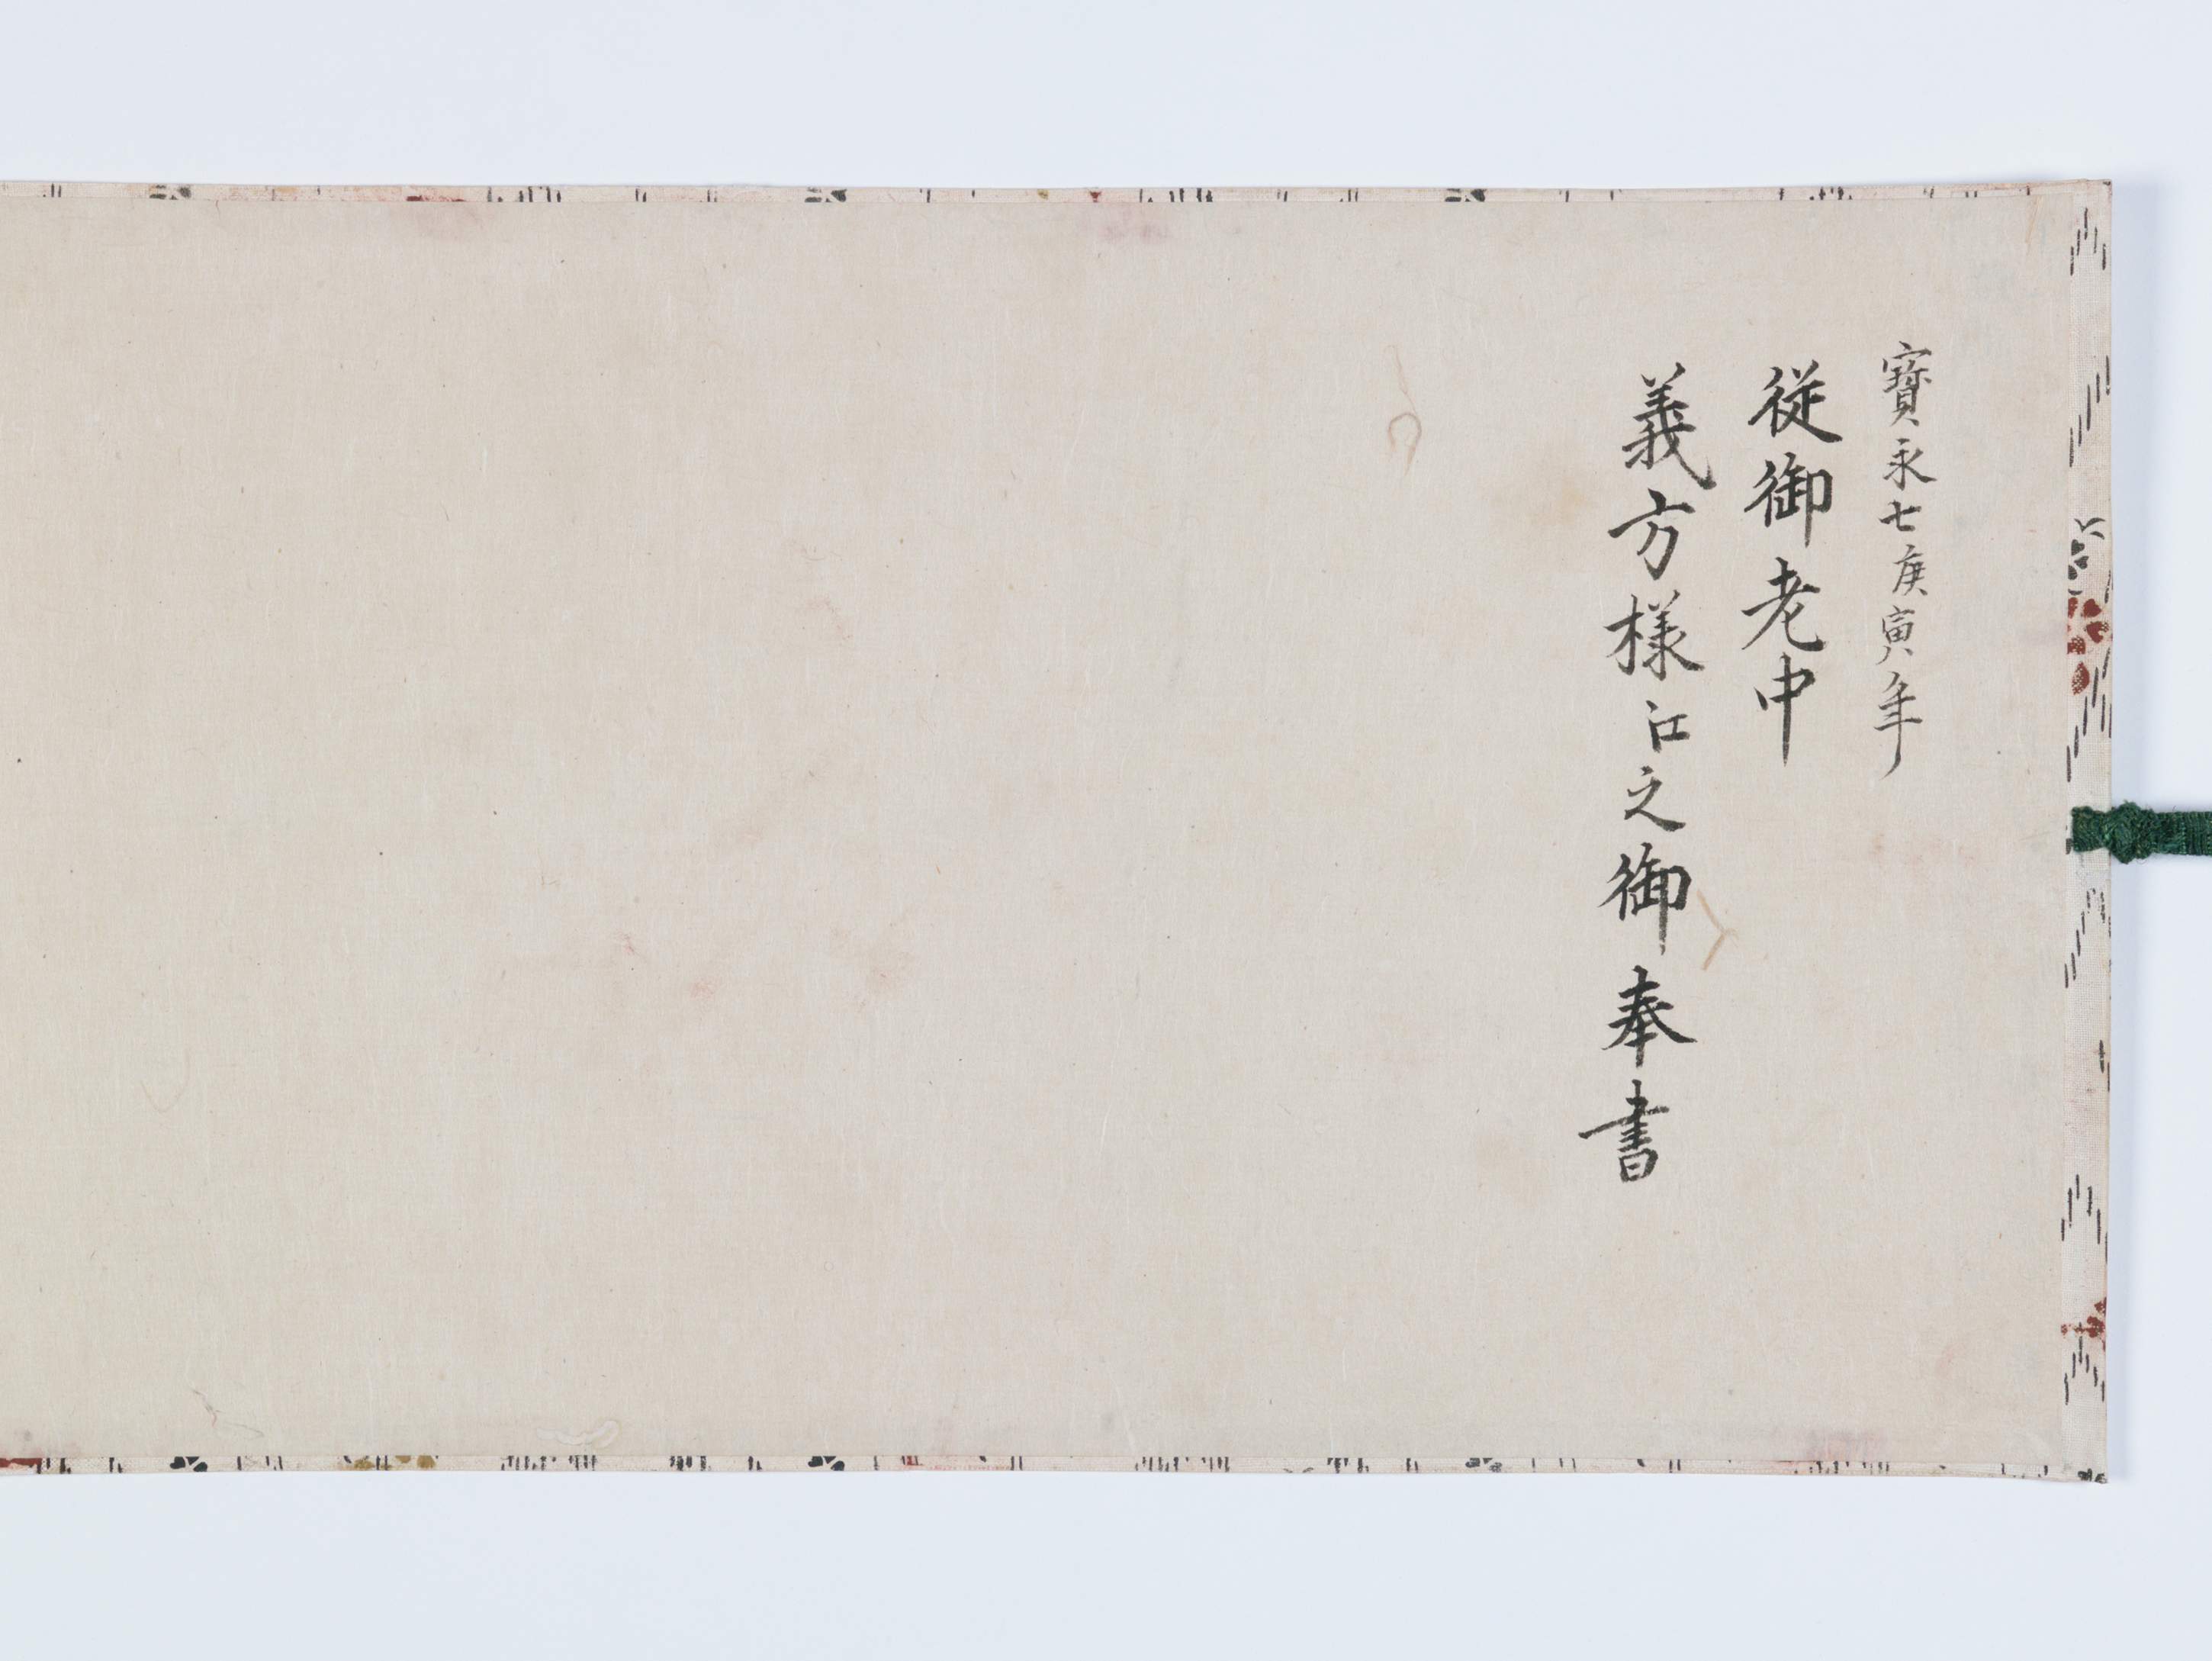 寶永七庚寅年
従御老中
義方様江之御奉書